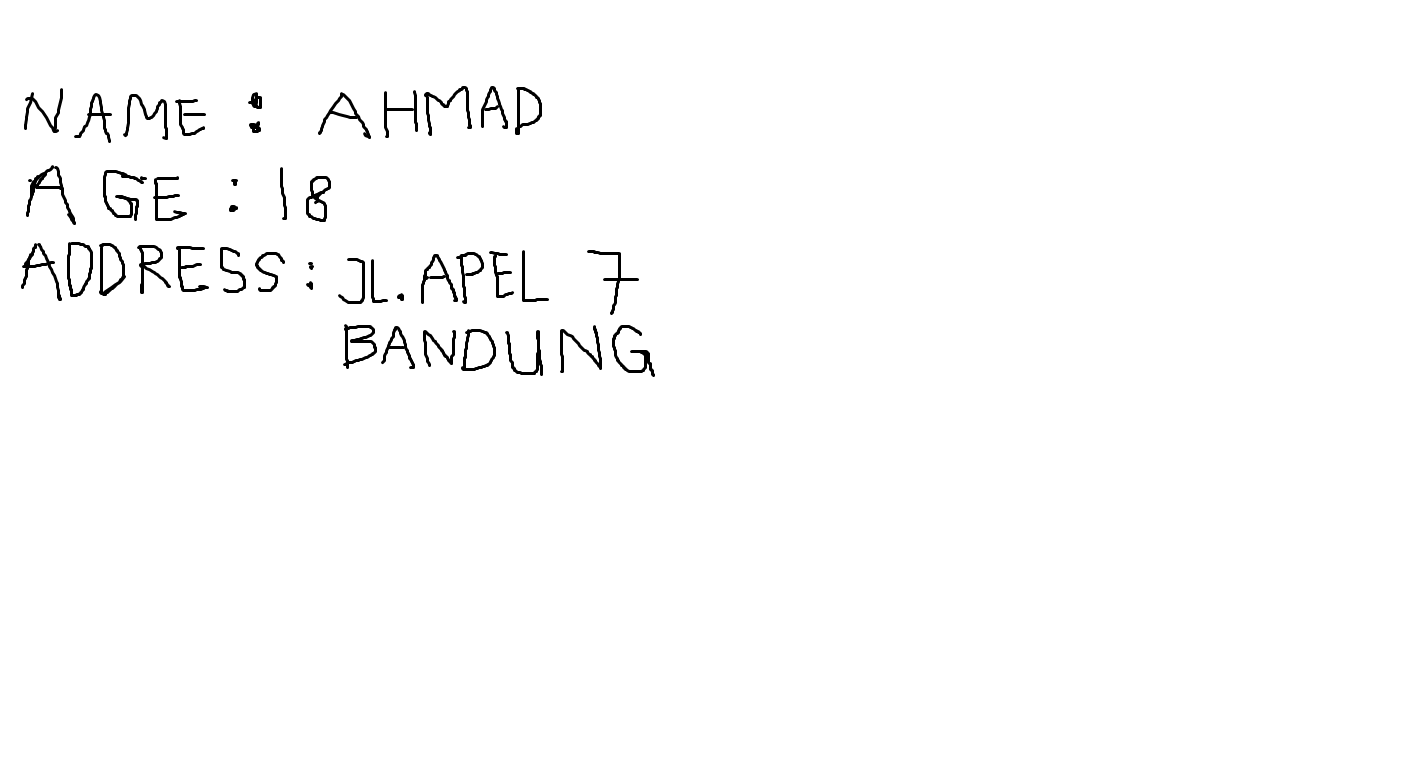 NAME : AHMAD
AGE : 18
ADDRESS : JL. APEL 7
BANDUNG